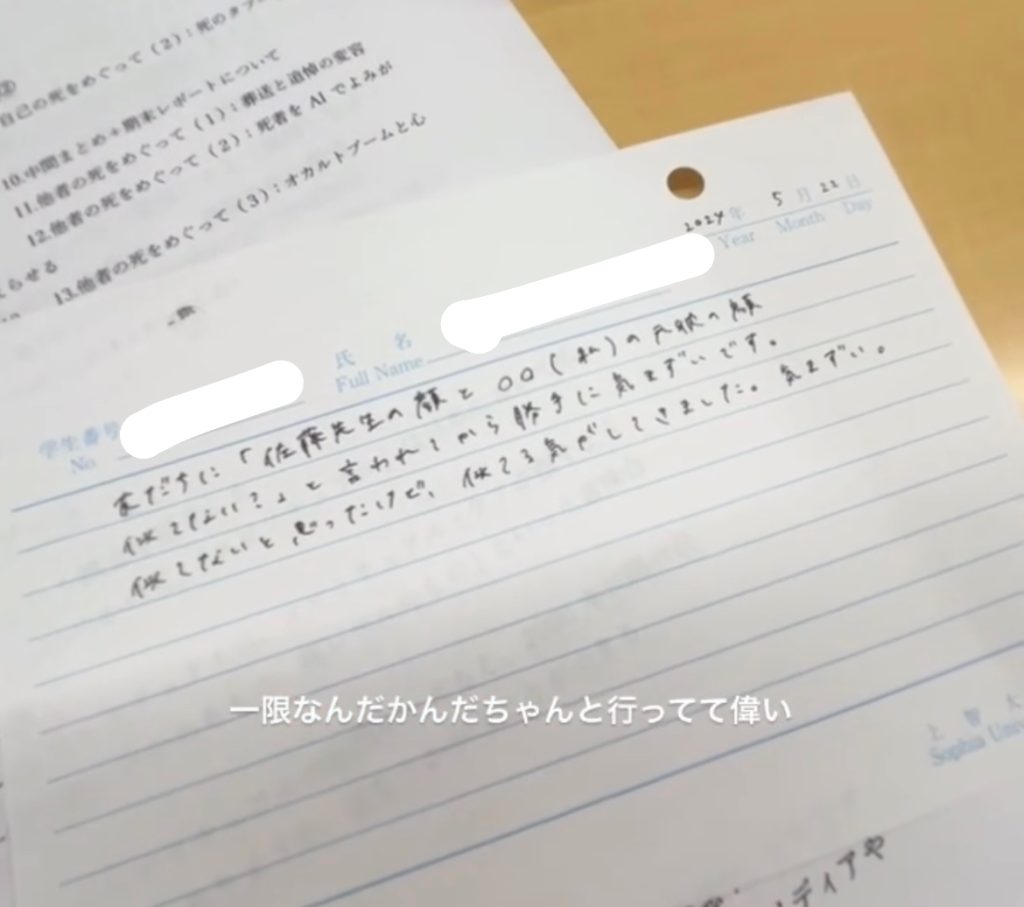 ②
自己の死をめぐって（2）：死のタブー
10.中間まとめ＋期末レポートについて
11.他者の死をめぐって（1）：葬送と追悼の変容
12.他者の死をめぐって（2）：死者をAIでよみが
えらせる
13.他者の死をめぐって（3）：オカルトブームと心
2024 年 5 月 22 日
Year Month Day
氏 名
Full Name
学生番号
No.
友だちに「佐藤先生の顔と〇〇(私)の元彼の顔
似てない?」と言われてから勝手に気まずいです。
似てないと思ったけど、似てる気がしてきました。気まずい。
一限なんだかんだちゃんと行ってて偉い
上 智 大
Sophia Univ
ディアや